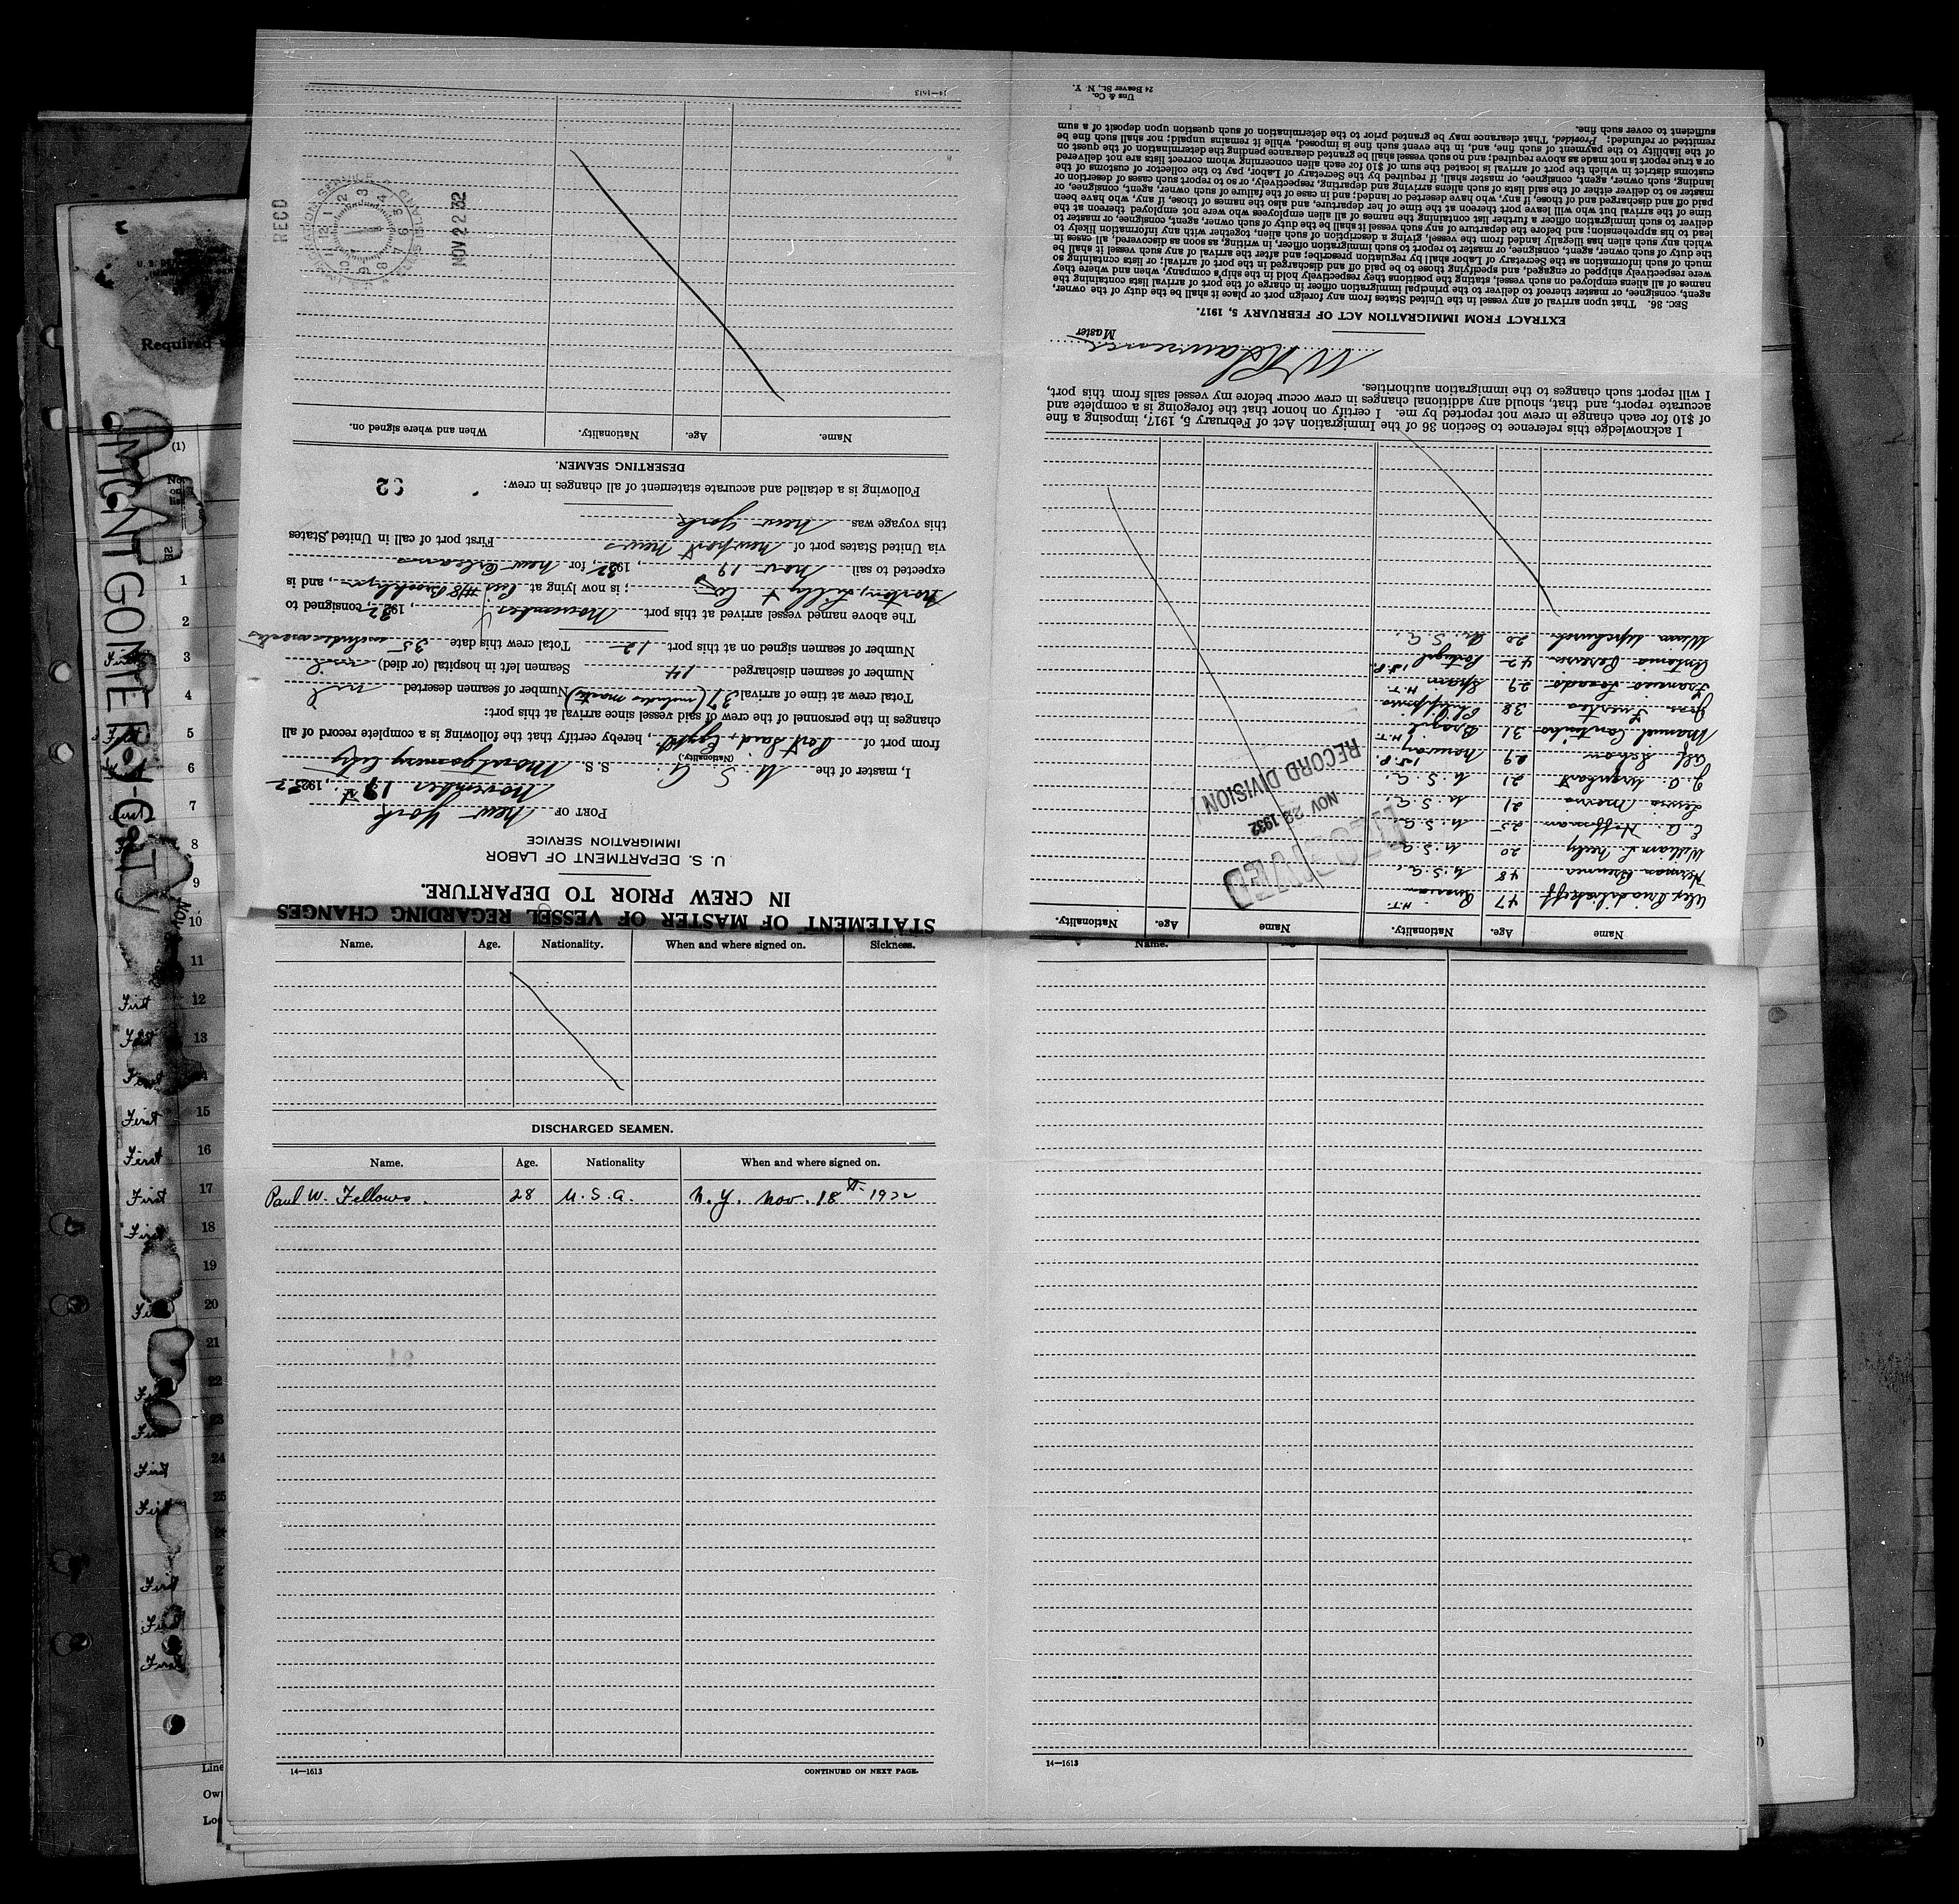 STATEMENT OF MASTER OF VESSEL REGARDING CHANGES
IN CREW PRIOR TO DEPARTURE.
U. S. DEPARTMENT OF LABOR
IMMIGRATION SERVICE
PORT OF New York
November 19, 1932
I, master of the U. S. A. S. S. Montgomery City
(Nationality)
from port of Port Said, Egypt, hereby certify that the following is a complete record of all
changes in the personnel of the crew of said vessel since arrival at this port:
Total crew at time of arrival 37 (includes master) Number of seamen deserted nil
Number of seamen discharged 14 Seamen left in hospital (or died) nil
Number of seamen signed on at this port 12 Total crew this date 35 includes master
The above named vessel arrived at this port November , 1932, consigned to
Norton, Lilly & Co ; is now lying at Pier #8 Brooklyn, and is
expected to sail Nov 19, 1932, for New Orleans
via United States port of Newport News First port of call in United States
this voyage was New York
Following is a detailed and accurate statement of all changes in crew:
92
DESERTING SEAMEN.
Name. Age. Nationality. When and where signed on.
RECD
NOV 22 32
14—1613
Name Age. Nationality. Name Age. Nationality.
47 Russian H.T.
Herman Brennes 48 U.S.A.
William L. Neely 20 U.S.A.
E. A. Hoffman 25 U.S.A.
21 U.S.A.
J. A. Urquhart 21 U.S.A.
Alf 29 Norway 1st P.
Manuel Coutinho 31 Brazil H.T.
Jose Fuertes 38 Philippines
Francisco Losado 29 Spain H.T.
Antonio Pereira 42 Portugal 1st P.
20 U.S.A.
RECEIVED
NOV 28 1932
RECORD DIVISION
I acknowledge this reference to Section 36 of the Immigration Act of February 5, 1917, imposing a fine
of $10 for each change in crew not reported by me. I certify on honor that the foregoing is a complete and
accurate report, and that, should any additional changes in crew occur before my vessel sails from this port,
I will report such changes to the immigration authorities.
Lawrence
Master
EXTRACT FROM IMMIGRATION ACT OF FEBRUARY 5, 1917.
SEC. 36. That upon arrival of any vessel in the United States from any foreign port or place it shall be the duty of the owner,
agent, consignee, or master thereof to deliver to the principal immigration officer in charge of the port of arrival lists containing the
names of all aliens employed on such vessel, stating the positions they respectively hold in the ship's company, when and where they
were respectively shipped or engaged, and specifying those to be paid off and discharged in the port of arrival; or lists containing so
much of such information as the Secretary of Labor shall by regulation prescribe; and after the arrival of any such vessel it shall be
the duty of such owner, agent, consignee, or master to report to such immigration officer, in writing, as soon as discovered, all cases in
which any such alien has illegally landed from the vessel, giving a description of such alien, together with any information likely to
lead to his apprehension; and before the departure of any such vessel it shall be the duty of such owner, agent, consignee, or master to
deliver to such immigration officer a further list containing the names of all alien employees who were not employed thereon at the
time of the arrival but who will leave port thereon at the time of her departure, and also the names of those, if any, who have been
paid off and discharged and of those, if any, who have deserted or landed; and in case of the failure of such owner, agent, consignee, or
master so to deliver either of the said lists of such aliens arriving and departing, respectively, or so to report such cases of desertion or
landing, such owner, agent, consignee, or master, shall, if required by the Secretary of Labor, pay to the collector of customs of the
customs district in which the port of arrival is located the sum of $10 for each alien concerning whom correct lists are not delivered
or a true report is not made as above required; and no such vessel shall be granted clearance pending the determination of the question
of the liability to the payment of such fine, and, in the event such fine is imposed, while it remains unpaid; nor shall such fine be
remitted or refunded; Provided, That clearance may be granted prior to the determination of such question upon deposit of a sum
sufficient to cover such fine.
Unz & Co.
24 Beaver St., N. Y.
Name. Age. Nationality. When and where signed on. Sickness.
DISCHARGED SEAMEN.
Name. Age. Nationality When and where signed on.
Paul W. Fellows. 28 U.S.A. N.Y. Nov. 18th 1932
14—1613
CONTINUED ON NEXT PAGE.
Name.
14—1613
Required
(1)
No. on list
1
2
First 3
4
First 5
6
First 7
8
9
10
11
First 12
13
First 14
First 15
First 16
First 17
First 18
19
First 20
21
22
23
First 24
First 25
First
First
First
Line